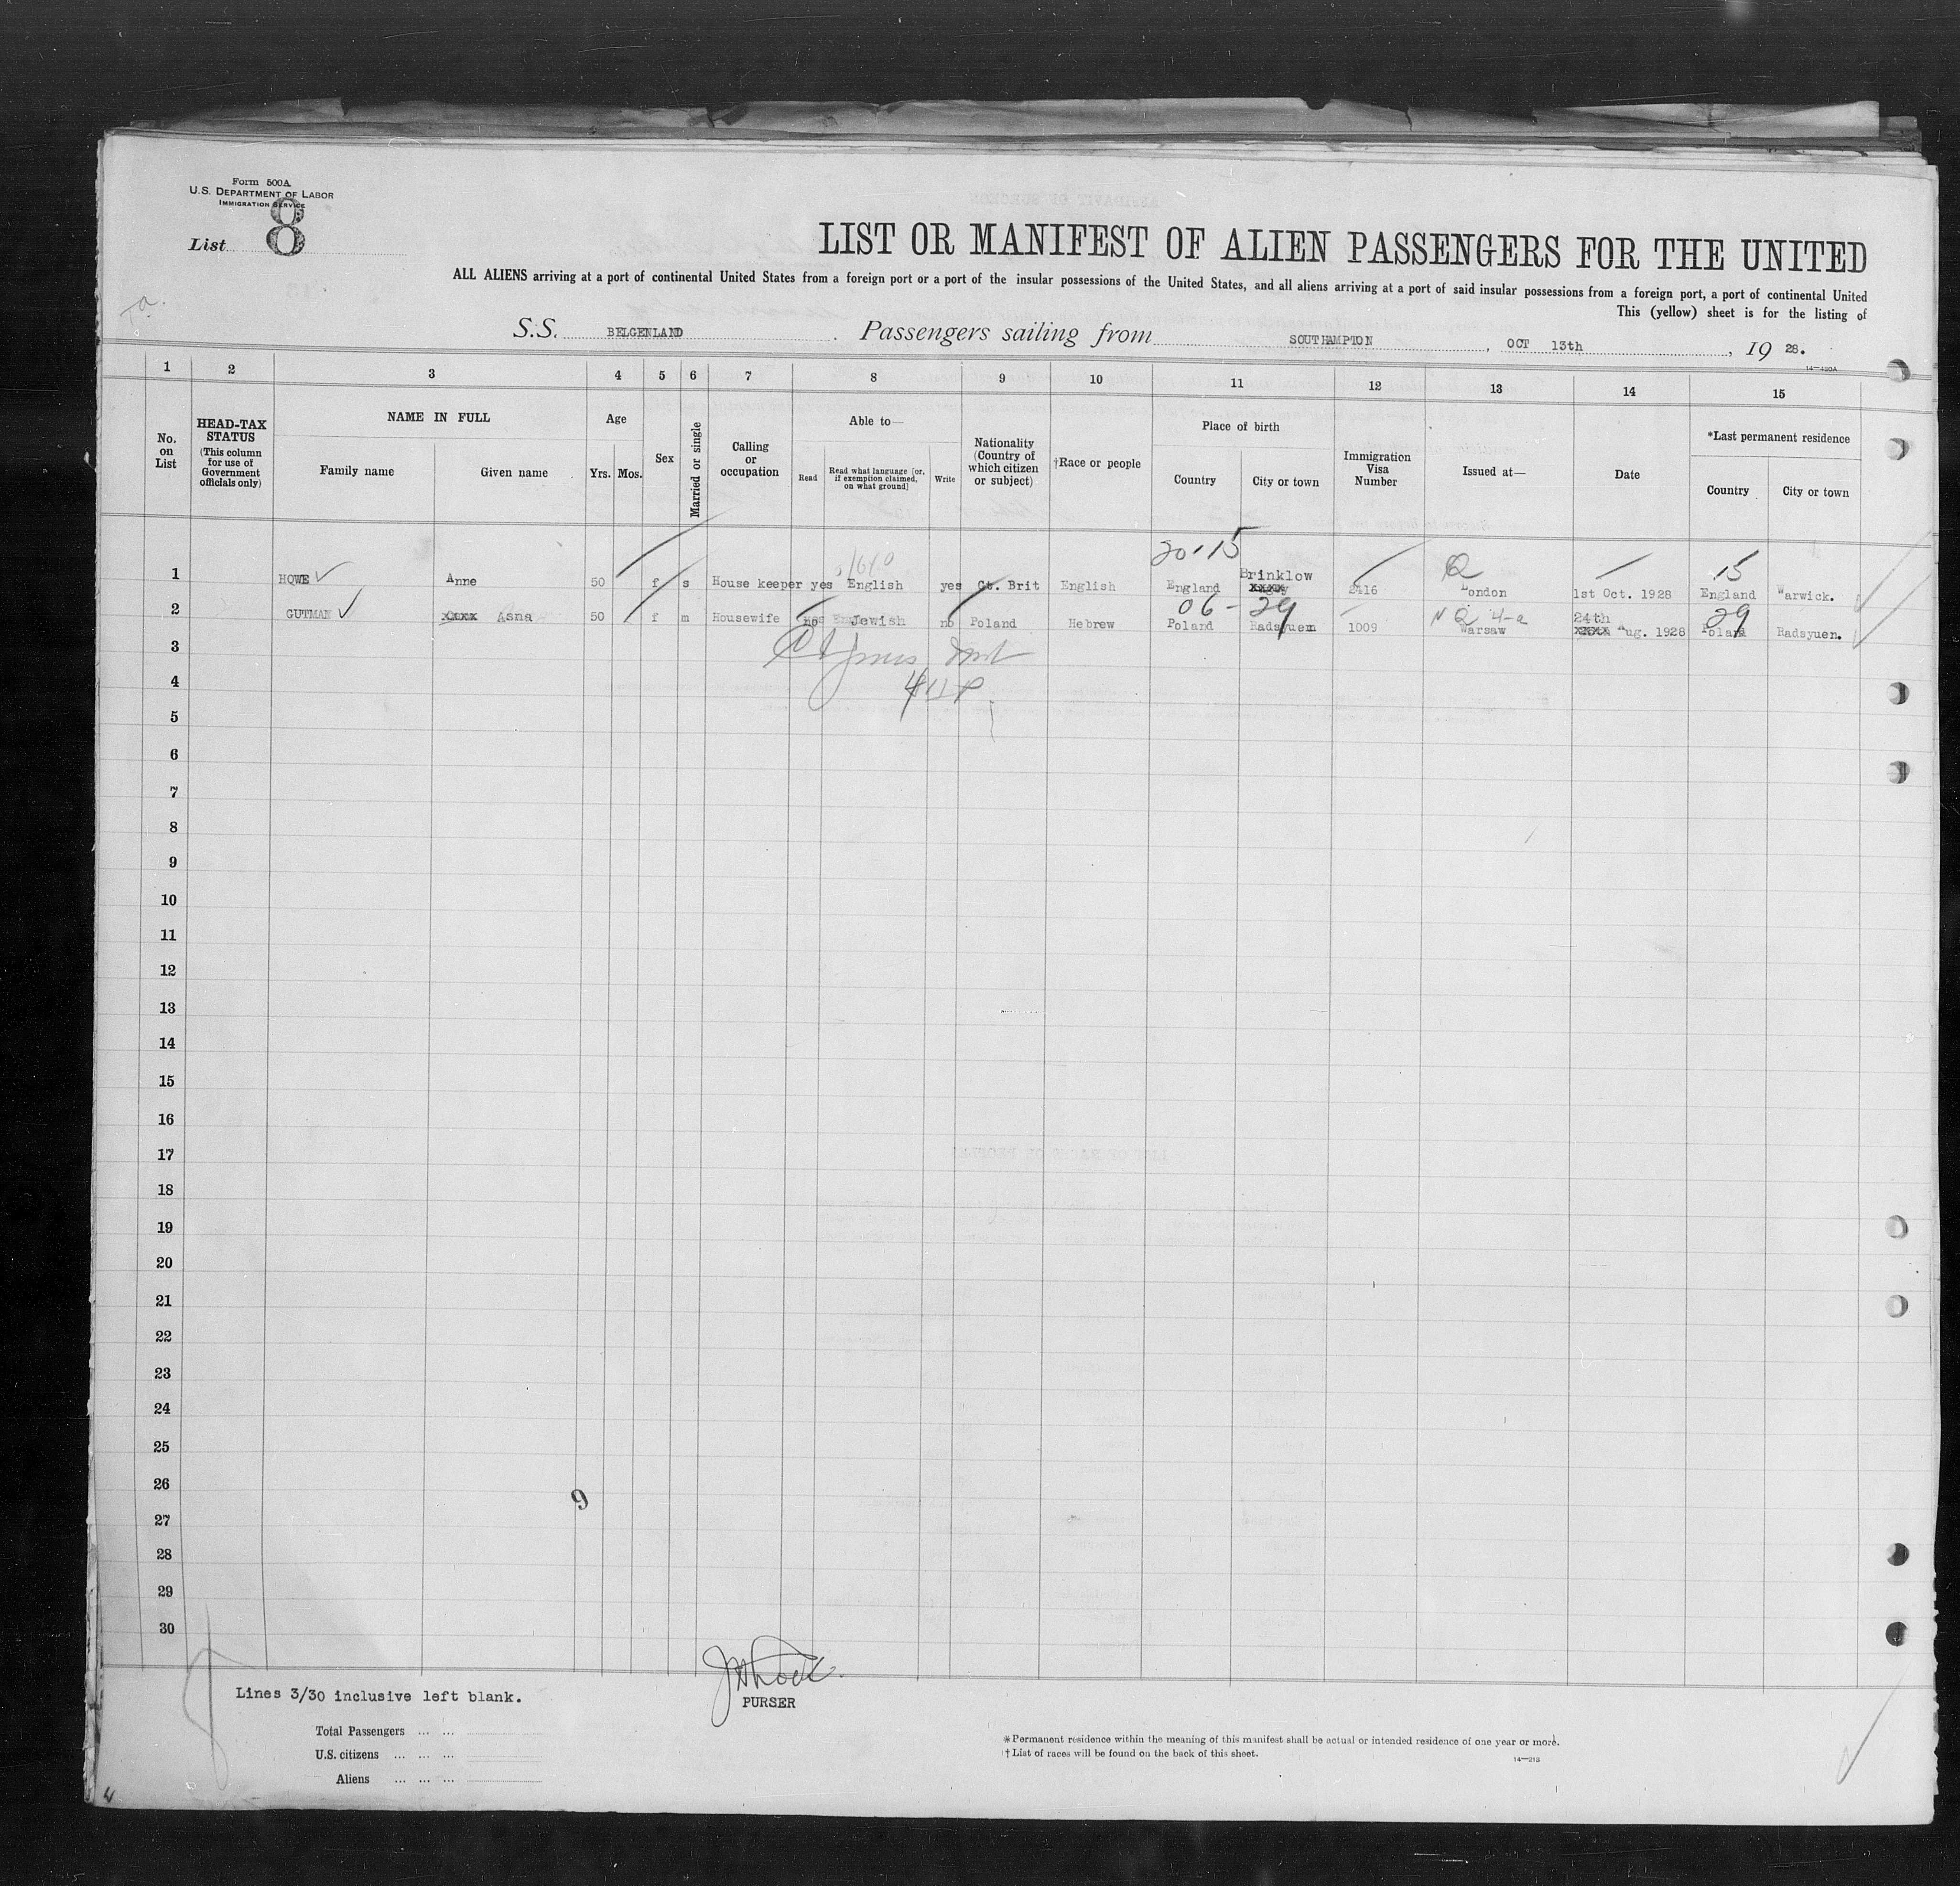 Form 500A
U.S. DEPARTMENT OF LABOR
IMMIGRATION SERVICE
List 8
LIST OR MANIFEST OF ALIEN PASSENGERS FOR THE UNITED
ALL ALIENS arriving at a port of continental United States from a foreign port or a port of the insular possessions of the United States, and all aliens arriving at a port of said insular possessions from a foreign port, a port of continental United
This (yellow) sheet is for the listing of
S.S. BELGENLAND . Passengers sailing from SOUTHAMPTON , OCT 13th , 19 28.
14—420A
1 2 3 4 5 6 7 8 9 10 11 12 13 14 15
No. on List
HEAD-TAX STATUS (This column for use of Government officials only)
NAME IN FULL
Family name
Given name
Age
Yrs.
Mos.
Sex
Married or single
Calling or occupation
Able to—
Read
Read what language [or, if exemption claimed, on what ground]
Write
Nationality (Country of which citizen or subject)
†Race or people
Place of birth
Country
City or town
Immigration Visa Number
Issued at—
Date
*Last permanent residence
Country
City or town
20-15 Q 15
1 HOWE Anne 50 f s House keeper yes English yes Gt. Brit English England Brinklow 2416 London 1st Oct. 1928 England Warwick.
06-29 Q 4-a 29
2 GUTMAN Asna 50 f m Housewife no Jewish no Poland Hebrew Poland Radsyuem 1009 Warsaw 24th Aug. 1928 Poland Radsyuen.
3
4
5
6
7
8
9
10
11
12
13
14
15
16
17
18
19
20
21
22
23
24
25
26
9
27
28
29
30
Lines 3/30 inclusive left blank.
PURSER
Total Passengers ... ...
U.S. citizens ... ... ...
Aliens ... ... ...
*Permanent residence within the meaning of this manifest shall be actual or intended residence of one year or more.
†List of races will be found on the back of this sheet.
14—213